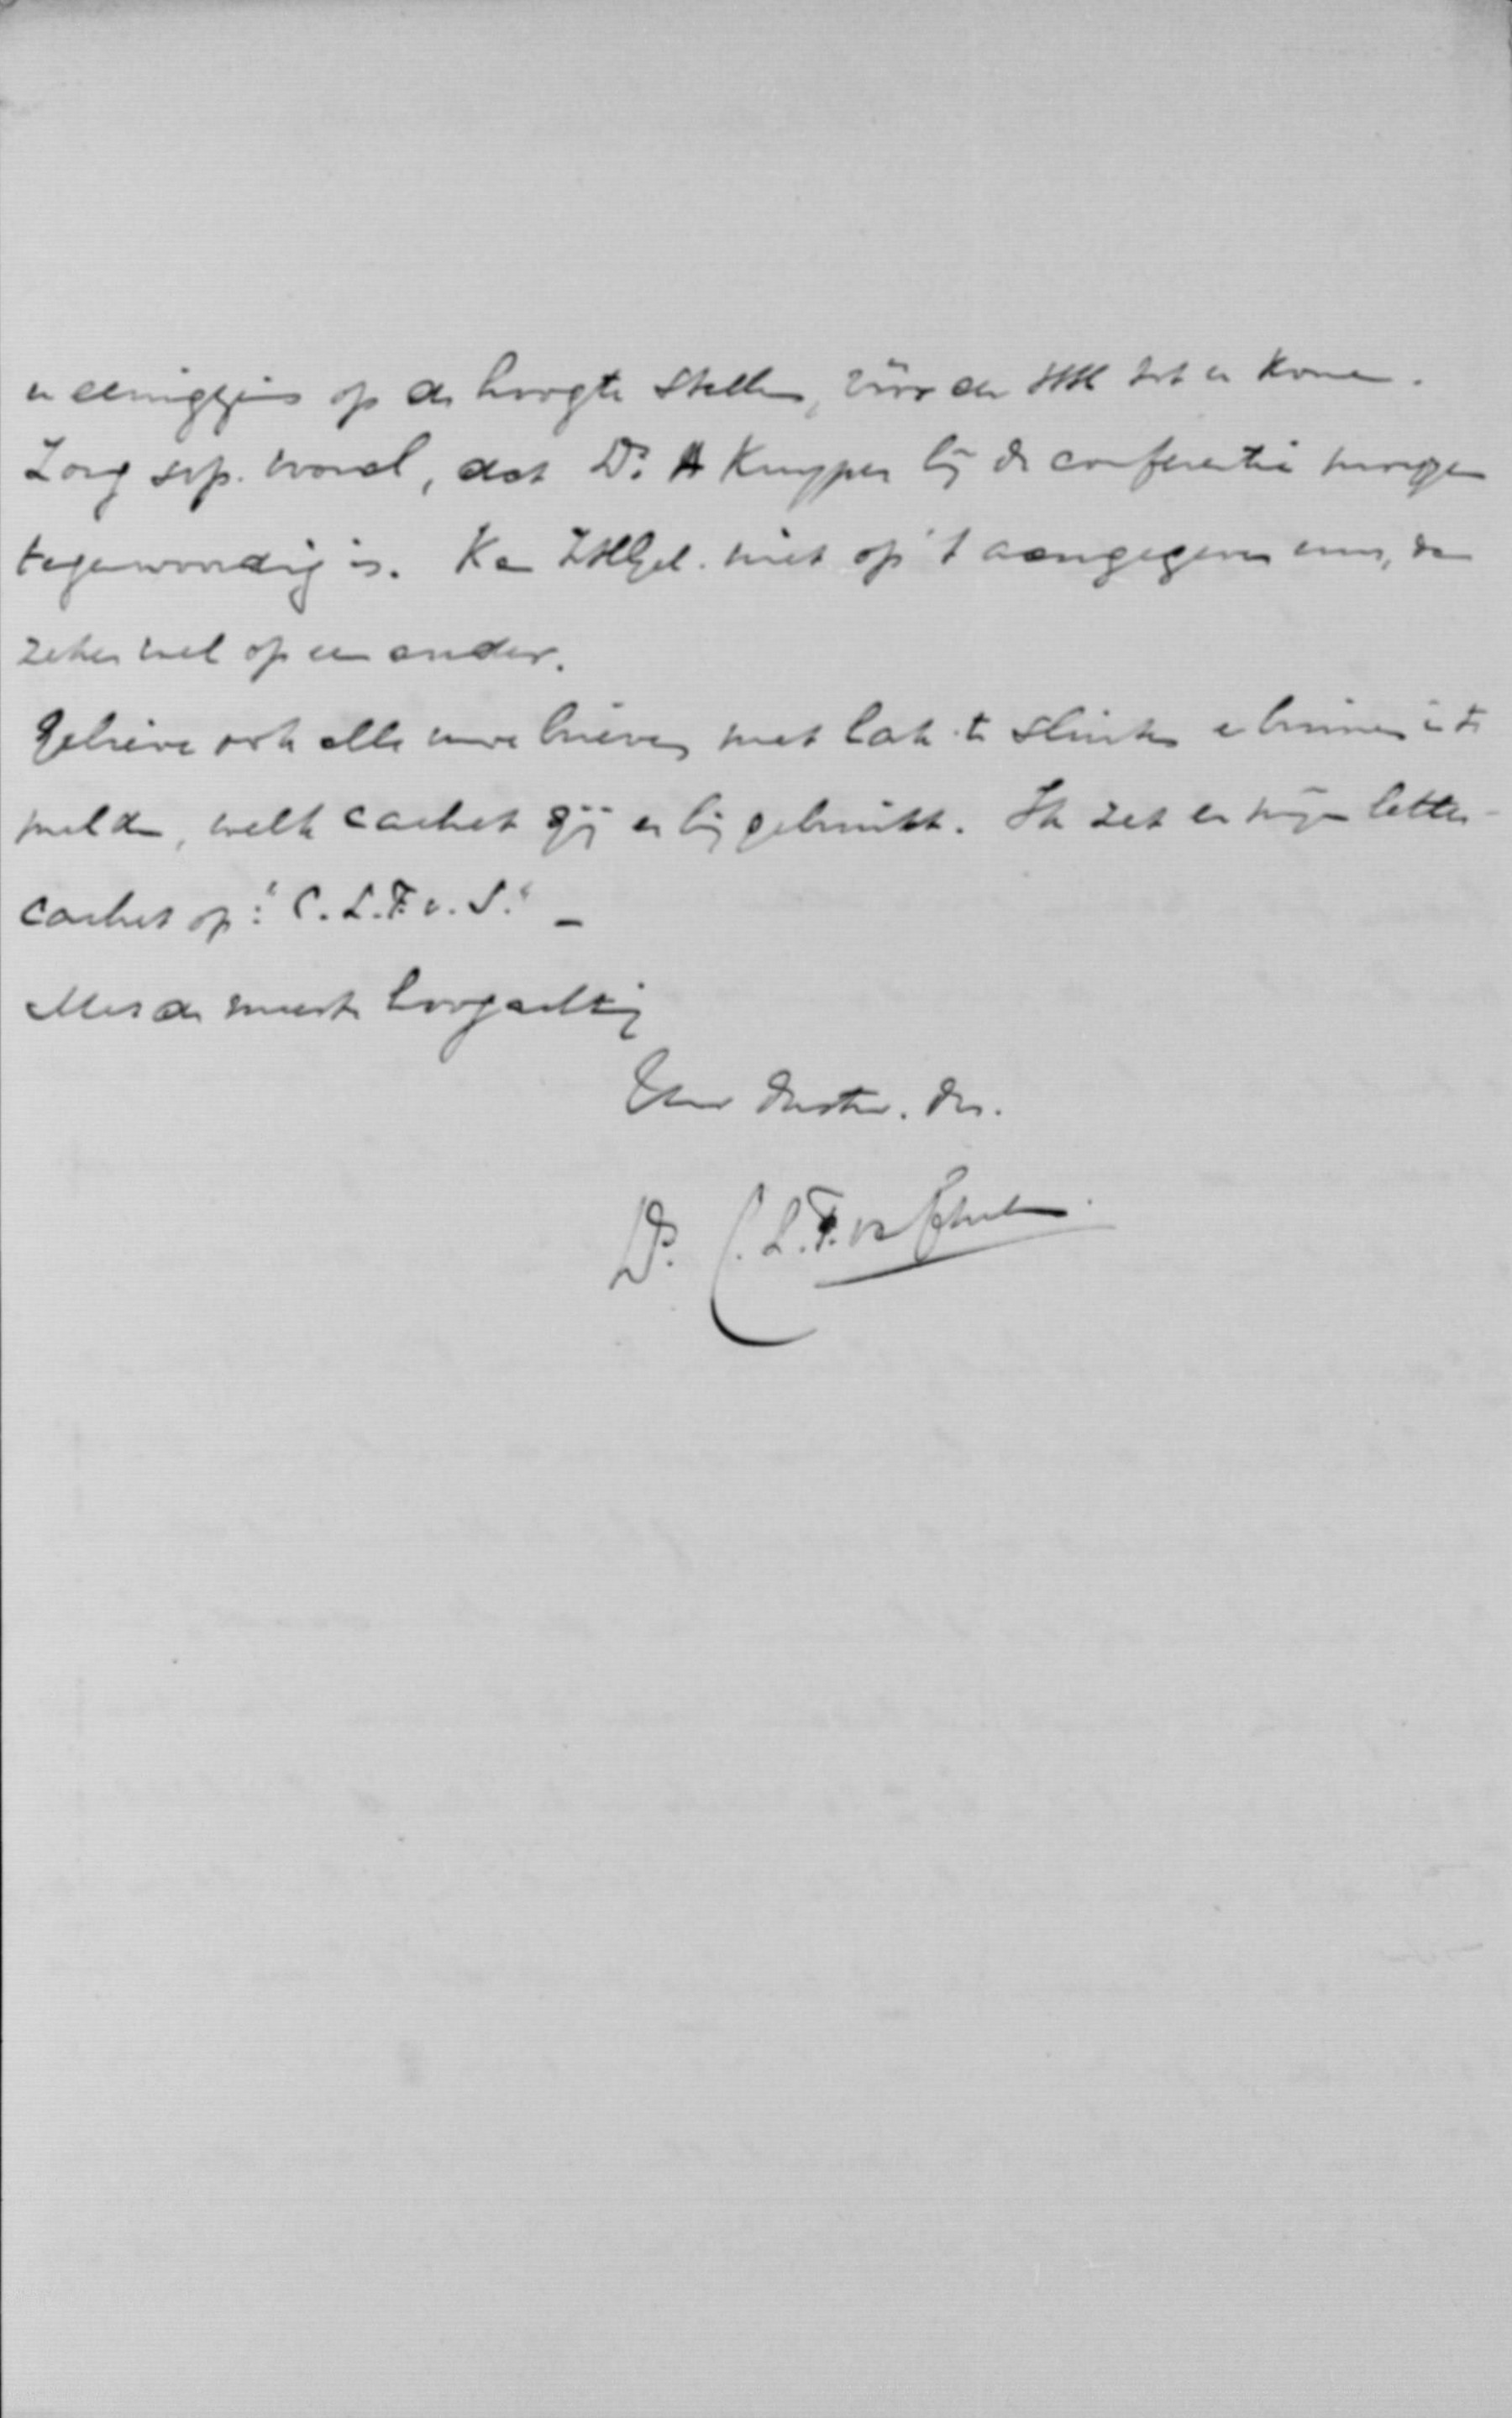 u eenigzins op de hoogte stellen, vóór de HH tot u komen.
Zorg svp. vooral, dat Dr. A Kuyper bij de conferentie morgen
tegenwoordig is. Kan ZHGel. niet op 't aangegeven uur, dan
zeker wel op een ander.
Gelieve ook alle uwe brieven met lak te sluiten en binnen in te
melden, welk cachet gij er bij gebruikt. Ik zet er mijn letter-
cachet op: "C. L. F. v. S." –
Met de meeste hoogachting
Uw dustw. dr.
Dr. C. L. F. van